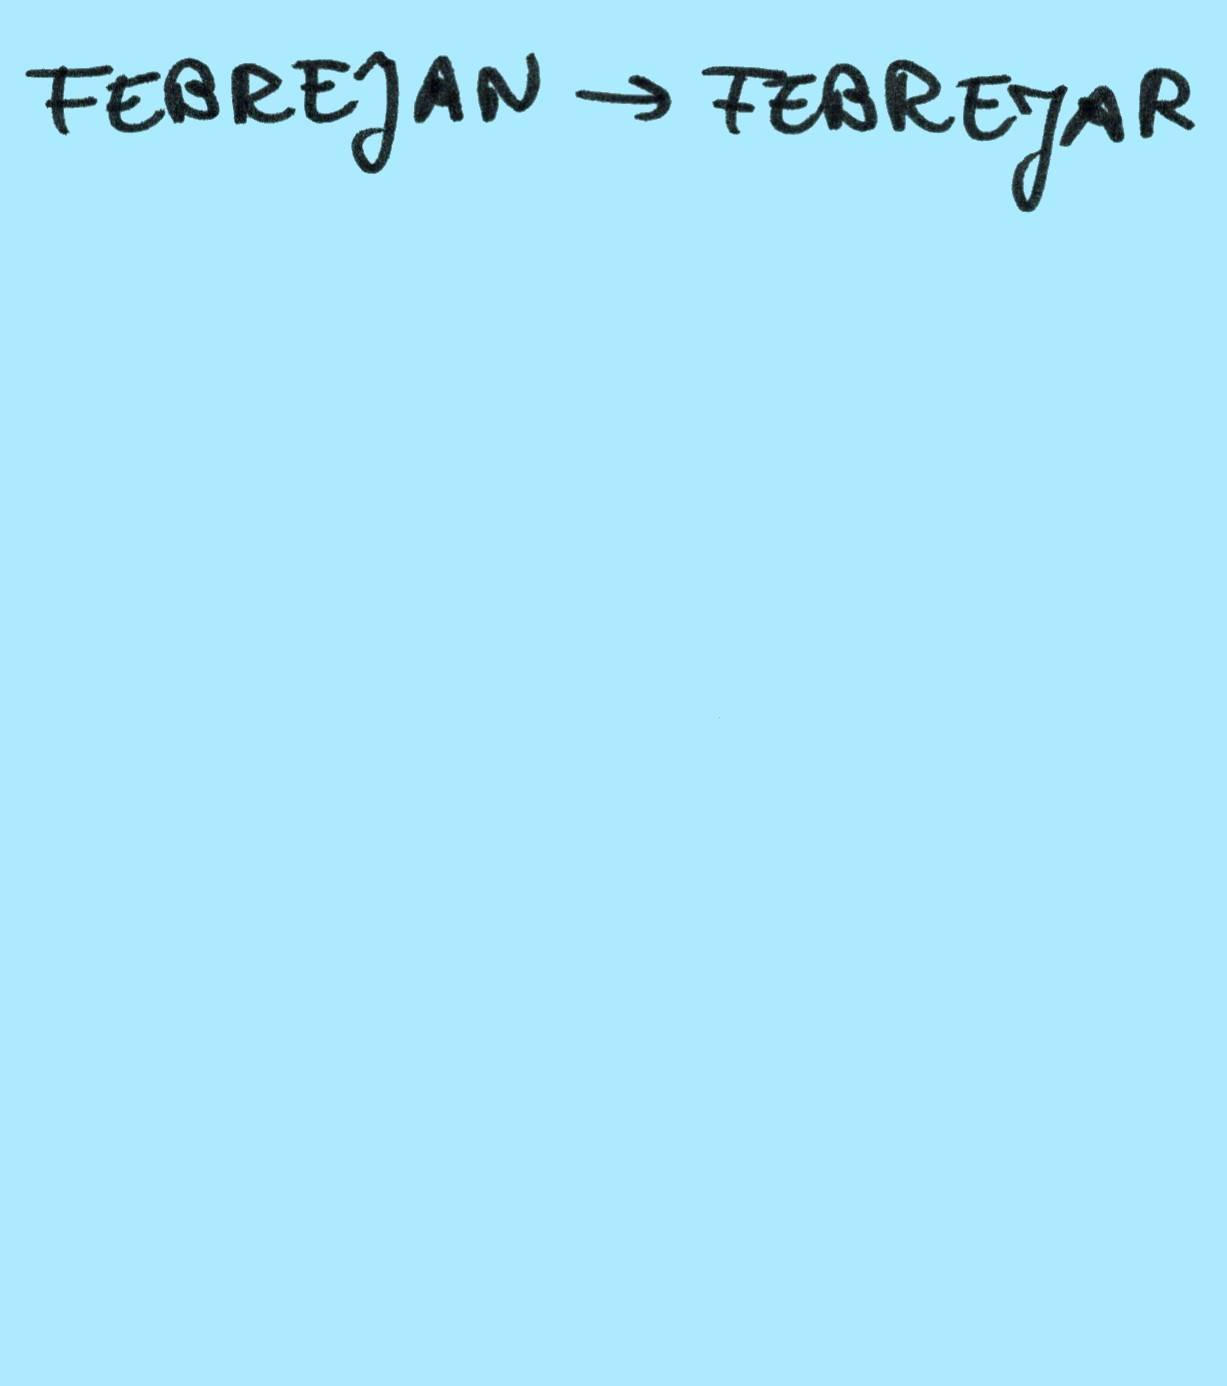 FEBREJAN → FEBREJAR